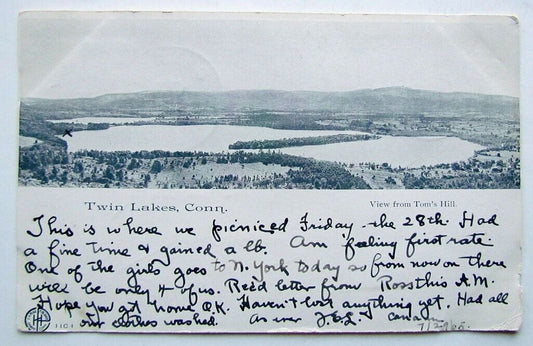 Twin Lakes, Conn.
View from Tom's Hill.
This is where we picniced Friday - the 28th. Had
a fine time & gained a lb. Am feeling first rate.
One of the girls goes to N. York today so from now on there
will be only 4 of us. Rec'd letter from Ross this A.M.
Hope you got home O.K. Haven't lost anything yet. Had all
our clothes washed. As ever
11C1